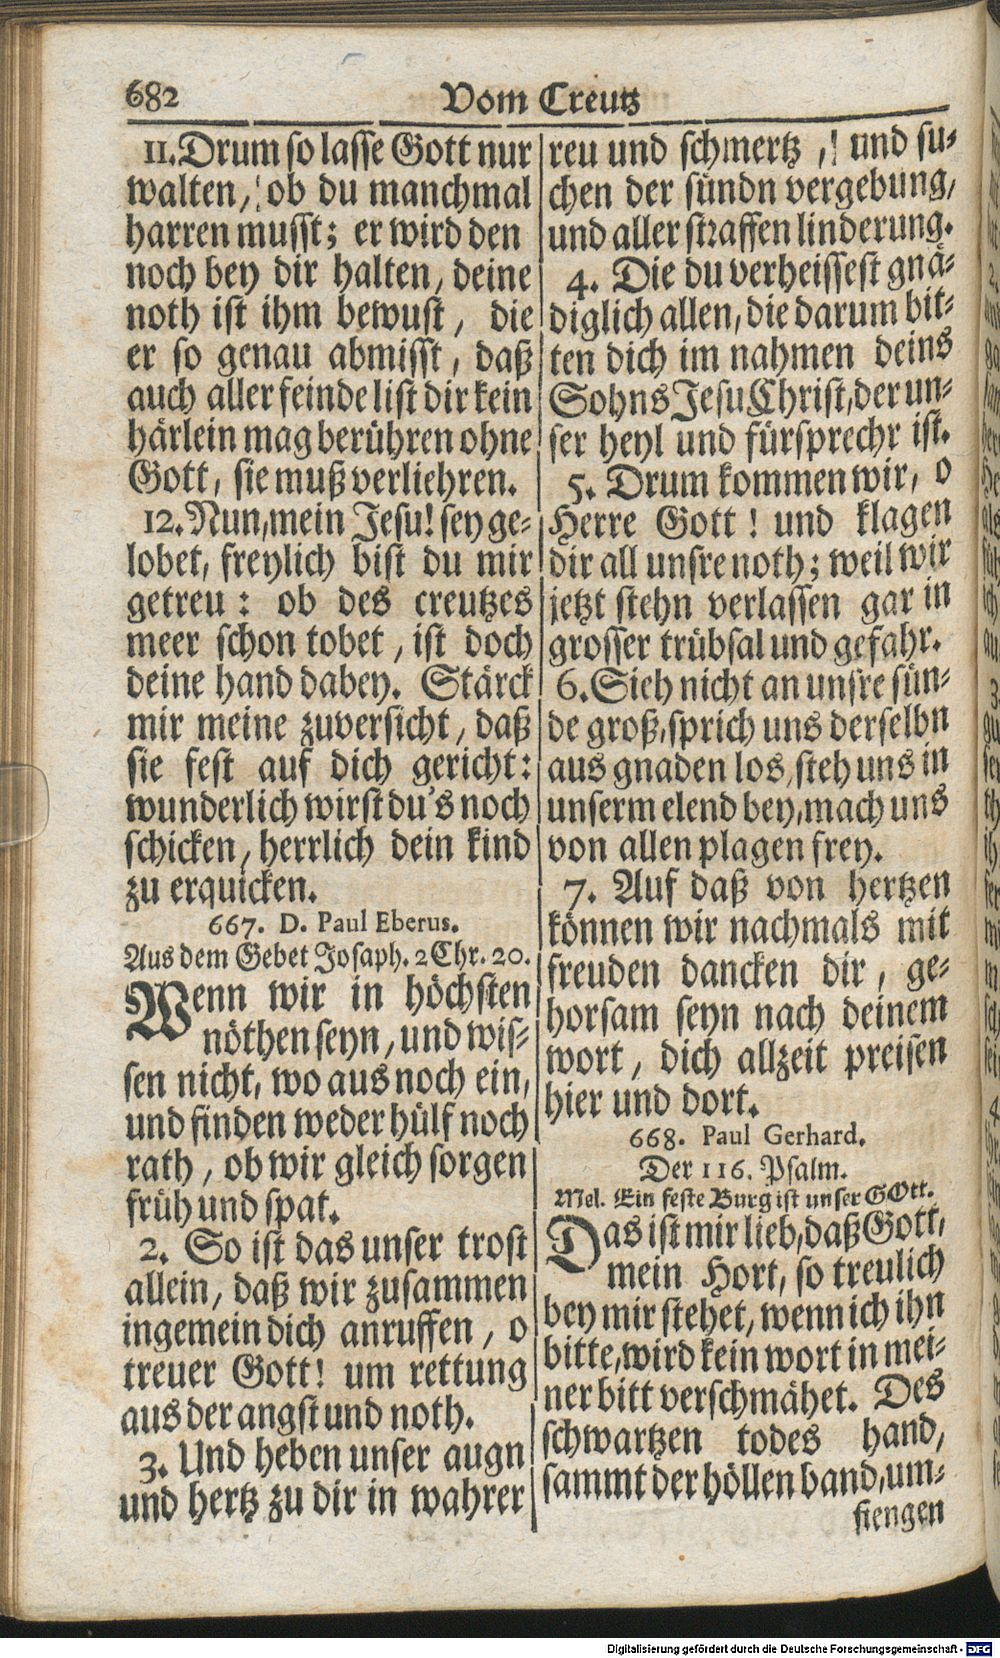 682
Vom Creutz
11. Drum so lasse Gott nur
walten, ob du manchmal
harren musst; er wird den
noch bey dir halten, deine
noth ist ihm bewust, die
er so genau abmisst, daß
auch aller feinde list dir kein
härlein mag berühren ohne
Gott, sie muß verliehren.
12. Nun, mein Jesu! sey ge-
lobet, freylich bist du mir
getreu: ob des creutzes
meer schon tobet, ist doch
deine hand dabey. Stärck
mir meine zuversicht, daß
sie fest auf dich gericht:
wunderlich wirst du's noch
schicken, herrlich dein kind
zu erquicken.
667. D. Paul Eberus.
Aus dem Gebet Josaph. 2 Chr. 20.
Wenn wir in höchsten
nöthen seyn, und wis-
sen nicht, wo aus noch ein,
und finden weder hülf noch
rath, ob wir gleich sorgen
früh und spat.
2. So ist das unser trost
allein, daß wir zusammen
ingemein dich anruffen, o
treuer Gott! um rettung
aus der angst und noth.
3. Und heben unser augn
und hertz zu dir in wahrer
reu und schmertz, und su-
chen der sündn vergebung,
und aller straffen linderung.
4. Die du verheissest gnä-
diglich allen, die darum bit-
ten dich im nahmen deins
Sohns Jesu Christ, der un-
ser heyl und fürsprechr ist.
5. Drum kommen wir, o
Herre Gott! und klagen
dir all unsre noth; weil wir
jetzt stehn verlassen gar in
grosser trübsal und gefahr.
6. Sieh nicht an unsre sün-
de groß, sprich uns derselbn
aus gnaden los, steh uns in
unserm elend bey, mach uns
von allen plagen frey.
7. Auf daß von hertzen
können wir nachmals mit
freuden dancken dir, ge-
horsam seyn nach deinem
wort, dich allzeit preisen
hier und dort.
668. Paul Gerhard.
Der 116. Psalm.
Mel. Ein feste Burg ist unser GOtt.
Das ist mir lieb, daß Gott,
mein Hort, so treulich
bey mir stehet, wenn ich ihn
bitte, wird kein wort in mei-
ner bitt verschmähet. Des
schwartzen todes hand,
sammt der höllen band, um-
fiengen
Digitalisierung gefördert durch die Deutsche Forschungsgemeinschaft - DFG